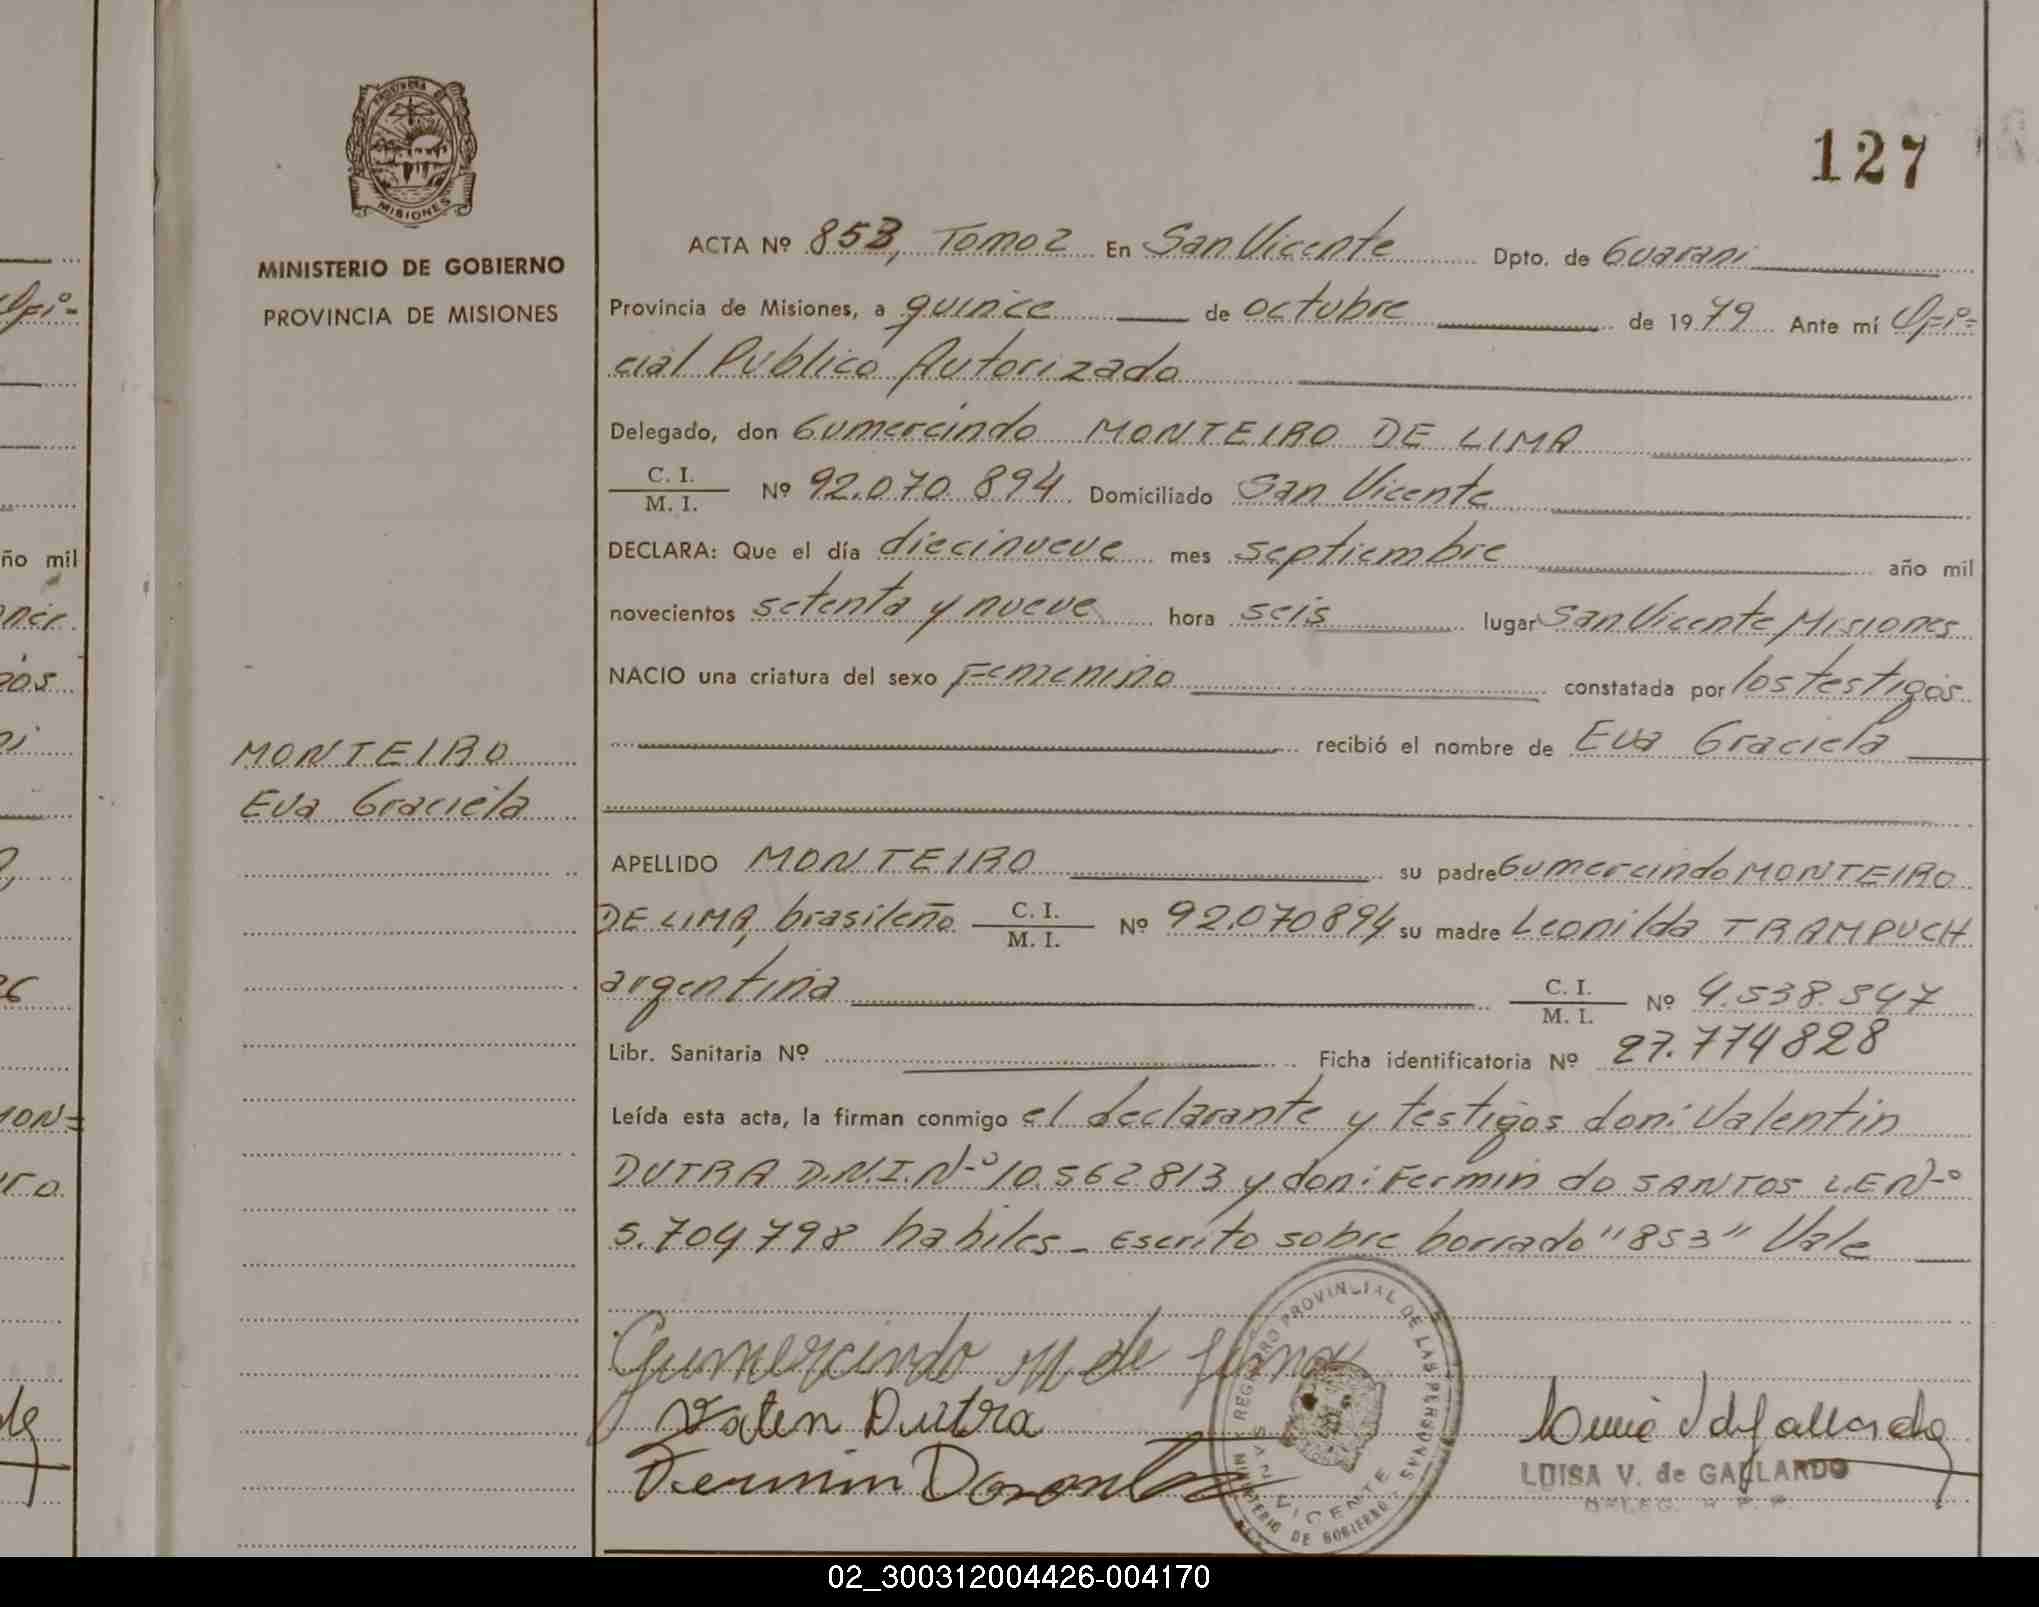 127
MINISTERIO DE GOBIERNO
PROVINCIA DE MISIONES
MISIONES
ACTA Nº 853, Tomo 2 En San Vicente Dpto. de Guarani
Provincia de Misiones, a quince de octubre de 1979 Ante mí Ofi=
cial Publico Autorizado
Delegado, don Gumercindo MONTEIRO DE LIMA
C. I. / M. I. Nº 92.070.894 Domiciliado San Vicente
DECLARA: Que el día diecinueve mes septiembre año mil
novecientos setenta y nueve hora seis lugar San Vicente Misiones
NACIO una criatura del sexo Femenino constatada por los testigos
recibió el nombre de Eva Graciela
MONTEIRO
Eva Graciela
APELLIDO MONTEIRO su padre Gumercindo MONTEIRO
DE LIMA, brasileño C. I. / M. I. Nº 92.070894 su madre Leonilda TRAMPUCH
argentina C. I. / M. I. Nº 4.538.547
Libr. Sanitaria Nº Ficha identificatoria Nº 27.774828
Leída esta acta, la firman conmigo el declarante y testigos don: Valentin
DUTRA D.N.I.Nº 10.562813 y don: Fermin do SANTOS L.E Nº
5.704798 habiles - Escrito sobre borrado "853" Vale
Gumercindo M de Lima
Valen Dutra
Fermin
REGISTRO PROVINCIAL DE LAS PERSONAS
SAN VICENTE
MINISTERIO DE GOBIERNO
LUISA V. de GALLARDO
ño mil
MON=
02_300312004426-004170